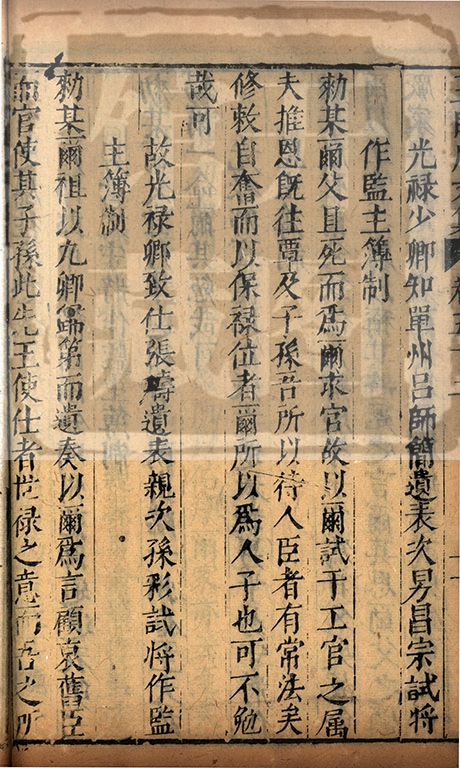 光祿少卿知單州呂師簡遺表次男昌宗試將
作監主簿制
勑某爾父且死而爲爾求官故以爾試于工官之屬
夫推恩旣往覃及子孫吾所以待人臣者有常法矣
修敕自奮而以保祿位者爾所以爲人子也可不勉
哉可
故光祿卿致仕張鑄遺表親次孫彩試將作監
主簿制
勑某爾祖以九卿歸第而遺奏以爾爲言顧哀舊臣
官使其子孫此先王使仕者世祿之意而吾之所